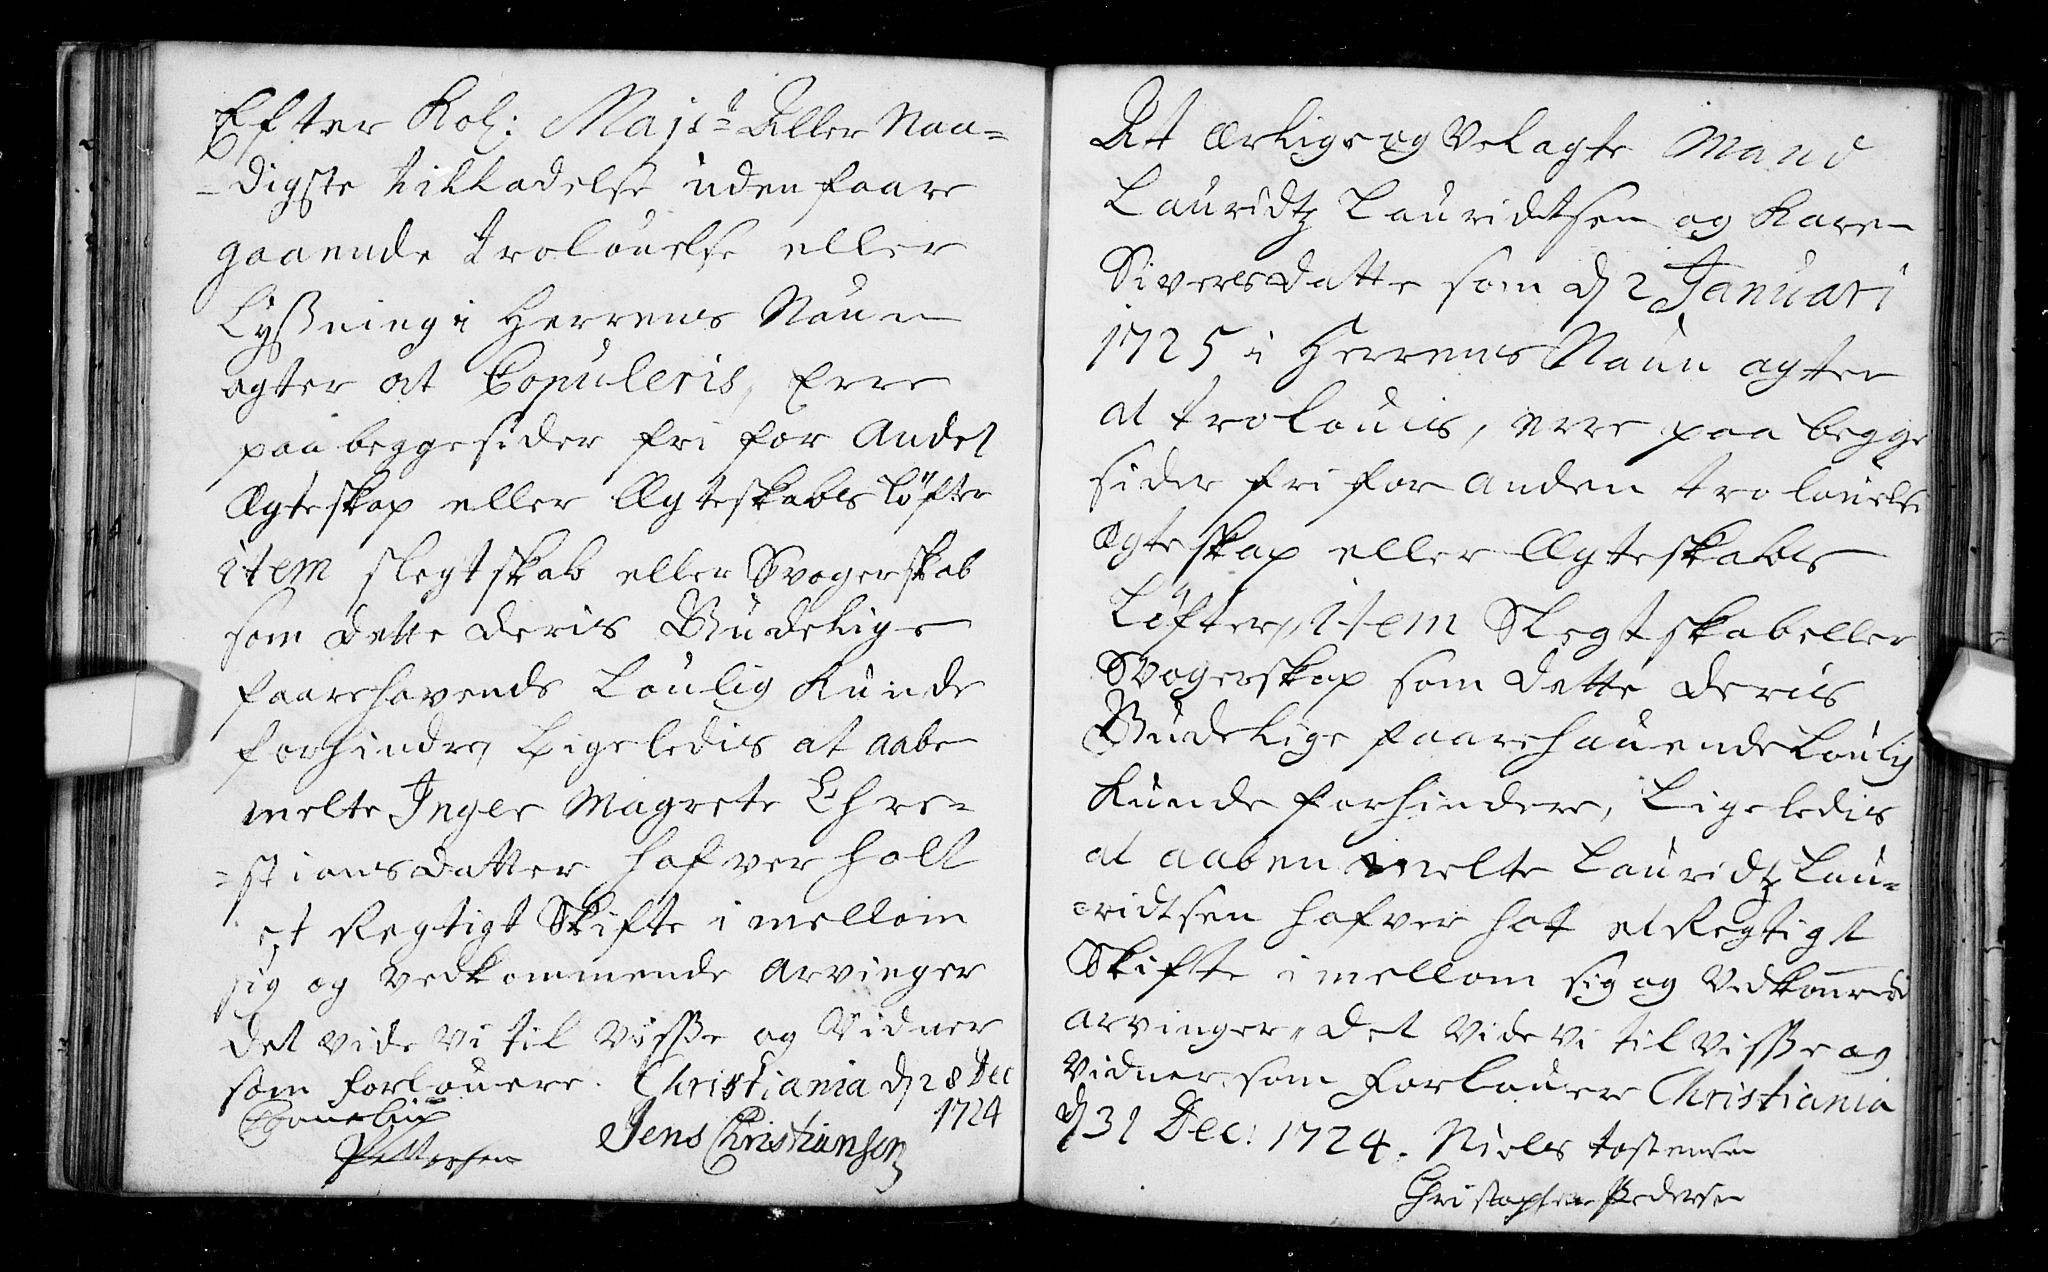 Efter Kol: Majs:ts Aller Naa=
=digste tilladelse uden faare
gaaende trolouelse eller
Lyßning i Herrens Naun
agter at Copuleris, Erre
paa begge sider fri for Andet
Ægteskap eller Ægteskabs løfter
item slegtskab eller Svogerskab
som dette deris Gudelige
faarehavende Loulig Kunde
forhindre, Ligeledis at aaben
melte Inger Magrete Chre=
=stiansdatter hafver holt
et Regtigt Skifte i mellom
sig og vedkommende Arvinger
det vide vi til visße og Vidner
som forlouere. Christiania d 28 Dec
1724
Cornelius
Pettersen Jens Christiansen
At Ærlige og Velagte Mand
Lauridtz Lauridtsen og Karen
Siversdatter som d 2 Januari
1725 i Herrens Naun agter
at trolouis, erre paa begge
sider fri for anden trolouelse
Ægteskap eller Ægteskabs
Løfter, item Slegtskab eller
Svogerskap som dette deris
Gudelige faarehauende Loulig
Kunde forhindere, Ligeledis
at aaben melte Lauridtz Lau=
=ridtsen hafver hatt et Regtigt
Skifte i mellom sig og Vedkommende
arvinger, det vide vi til visße og
vidner som forlouere Christiania
d 31 Dec: 1724. Niels Tostensen
Christopher Pedersen